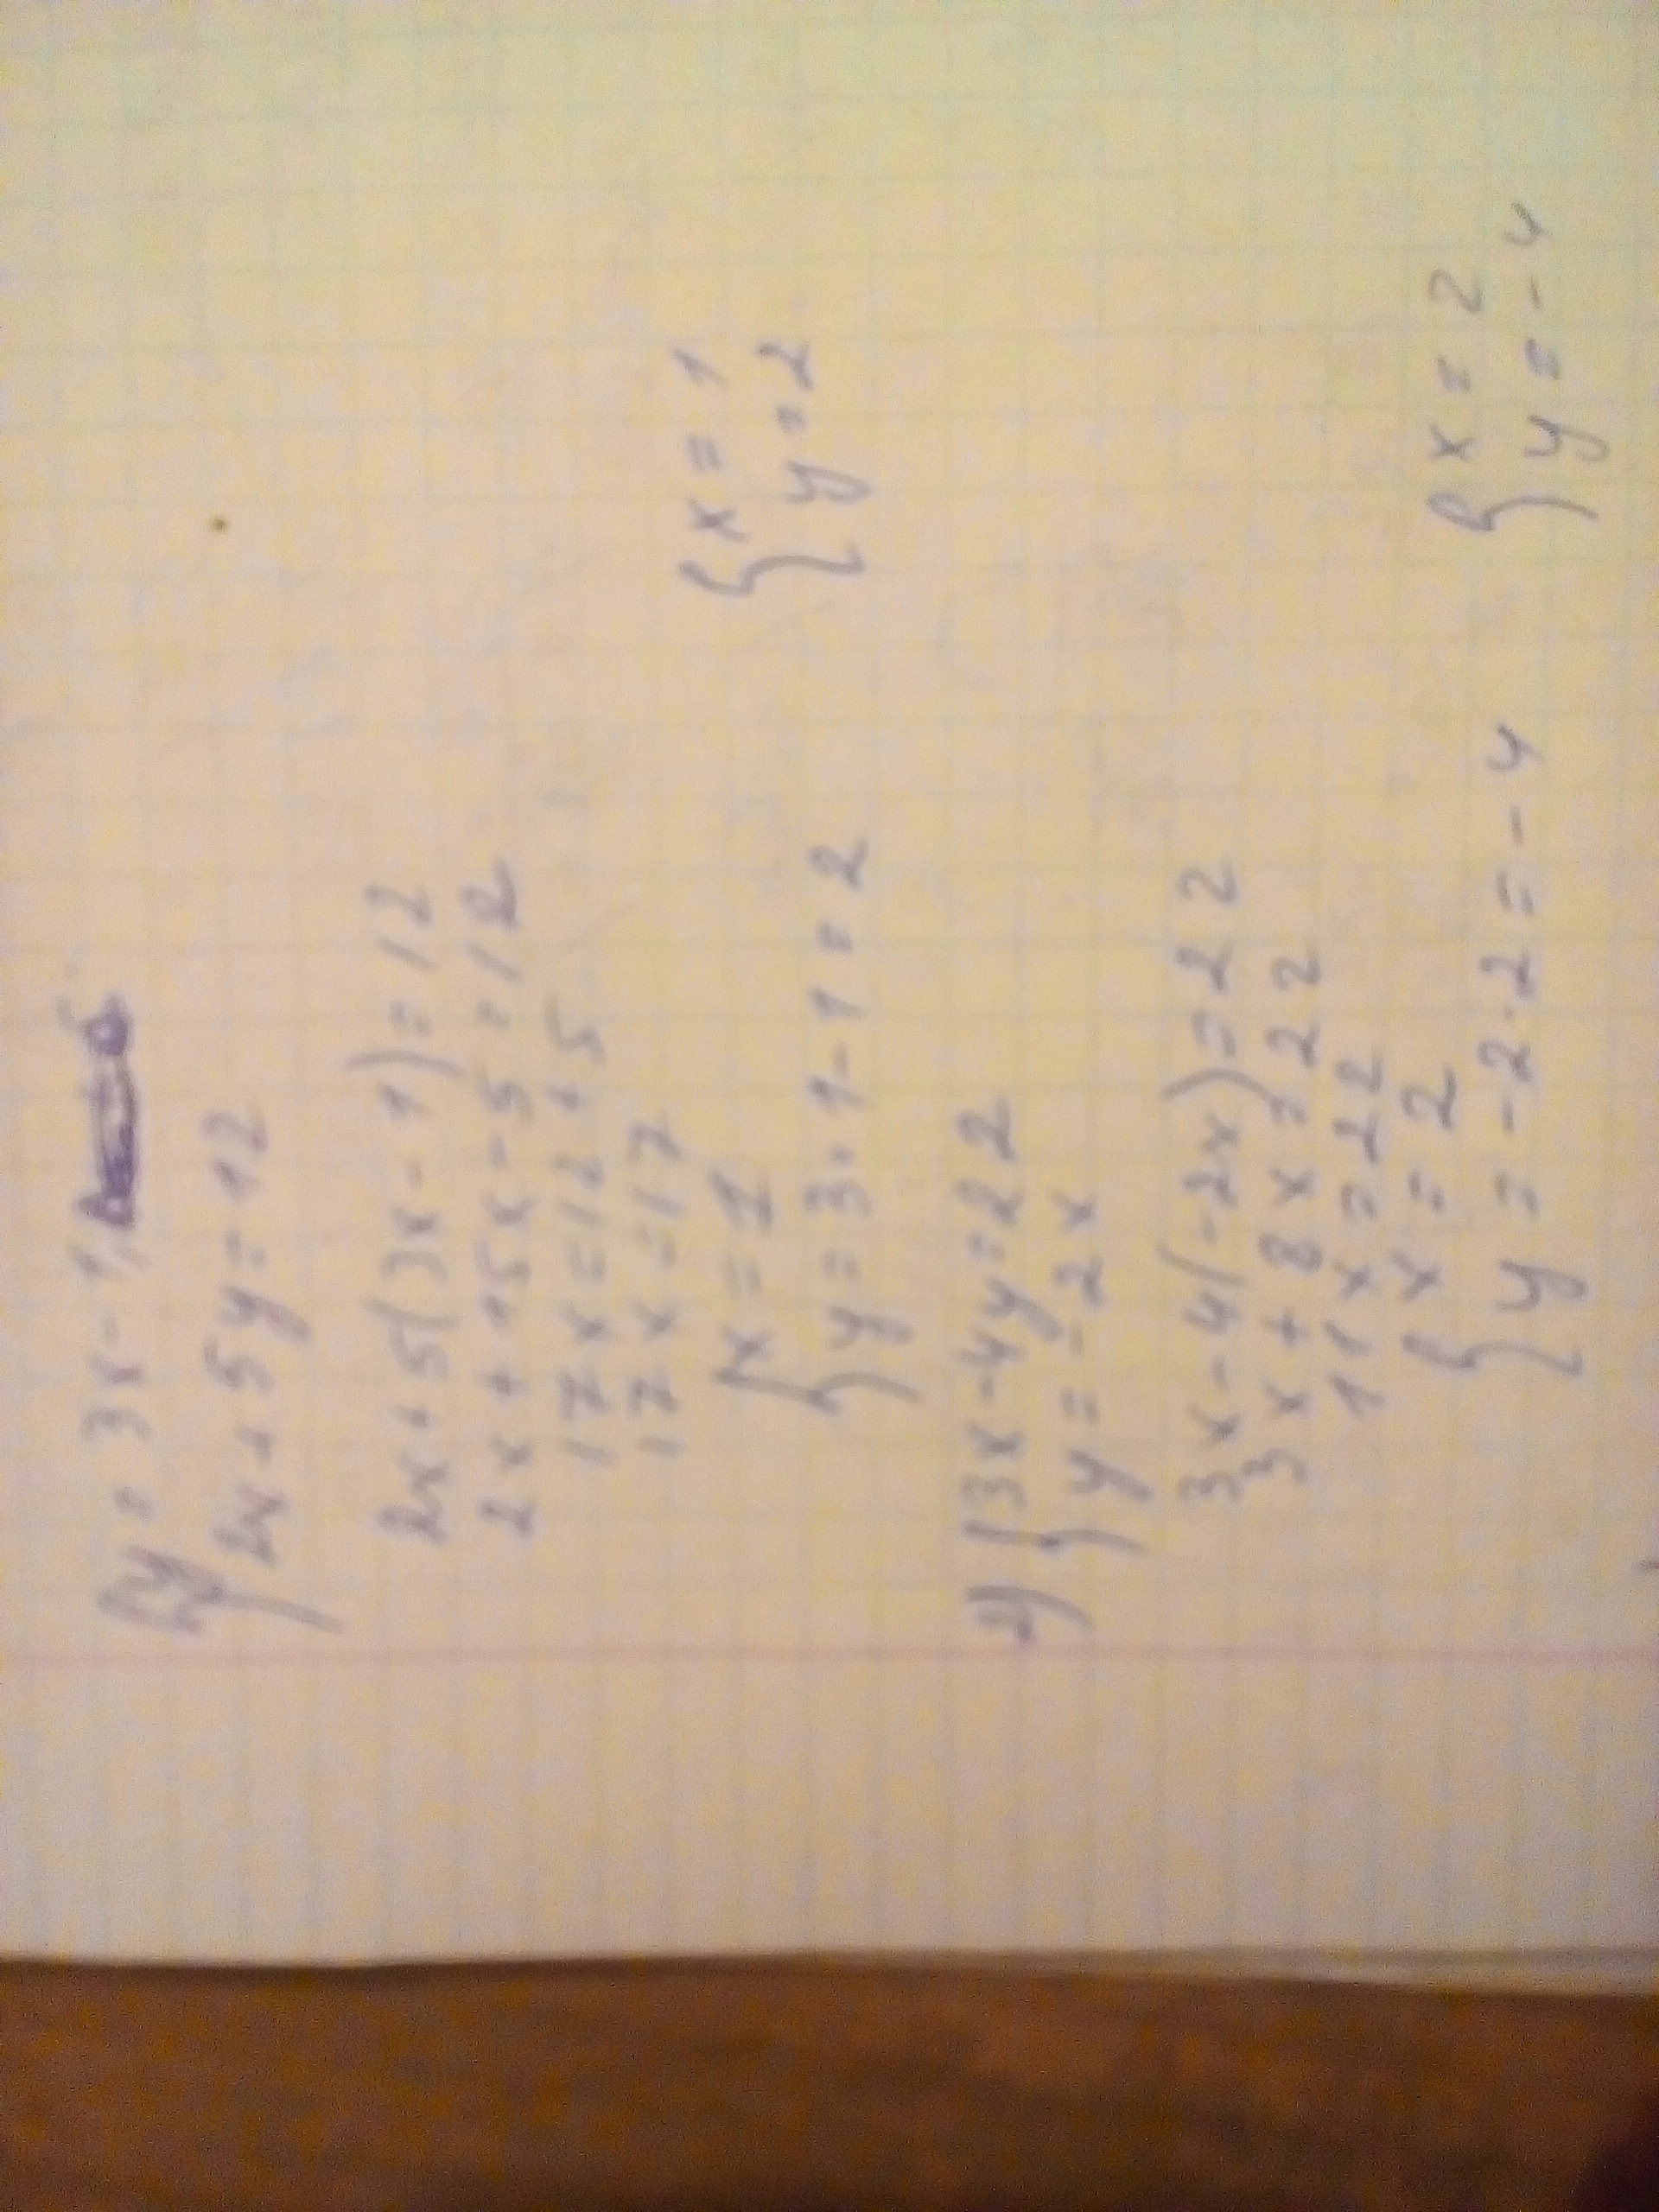 { y = 3x - 1,
2x + 5y = 12
2x + 5(3x - 1) = 12
2x + 15x - 5 = 12
17x = 12 + 5
17x = 17
{ x = 1
y = 3 · 1 - 1 = 2
{ x = 1
y = 2
2) { 3x - 4y = 22
y = -2x
3x - 4(-2x) = 22
3x + 8x = 22
11x = 22
{ x = 2
y = -2 · 2 = -4
{ x = 2
y = -4